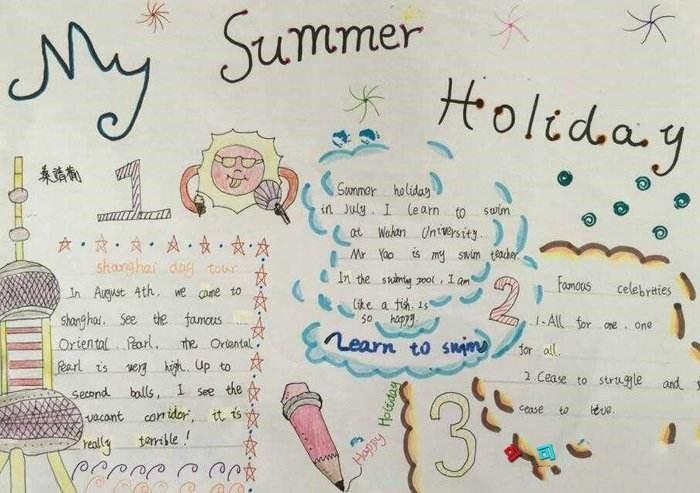 My Summer Holiday
1
shanghai day tour
In August 4th. we came to
shanghai. See the famous ...
Oriental Pearl. the Oriental
Pearl is very high. Up to
second balls, I see the
vacant corridor, it is
really terrible!
Summer holiday
in July. I learn to swim
at Wuhan University.
Mr Yao is my swim teacher
In the swimming pool, I am
like a fish. Is
so happy.
Learn to swim
2
Happy Holiday
3
Famous celebrities
1. All for one. one
for all.
2. Cease to struggle and
cease to live.